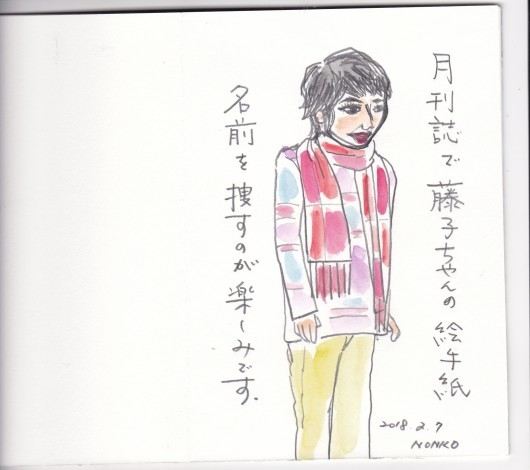 月刊誌で藤子ちゃんの絵手紙
名前を捜すのが楽しみです.
2018 2. 7
NONKO